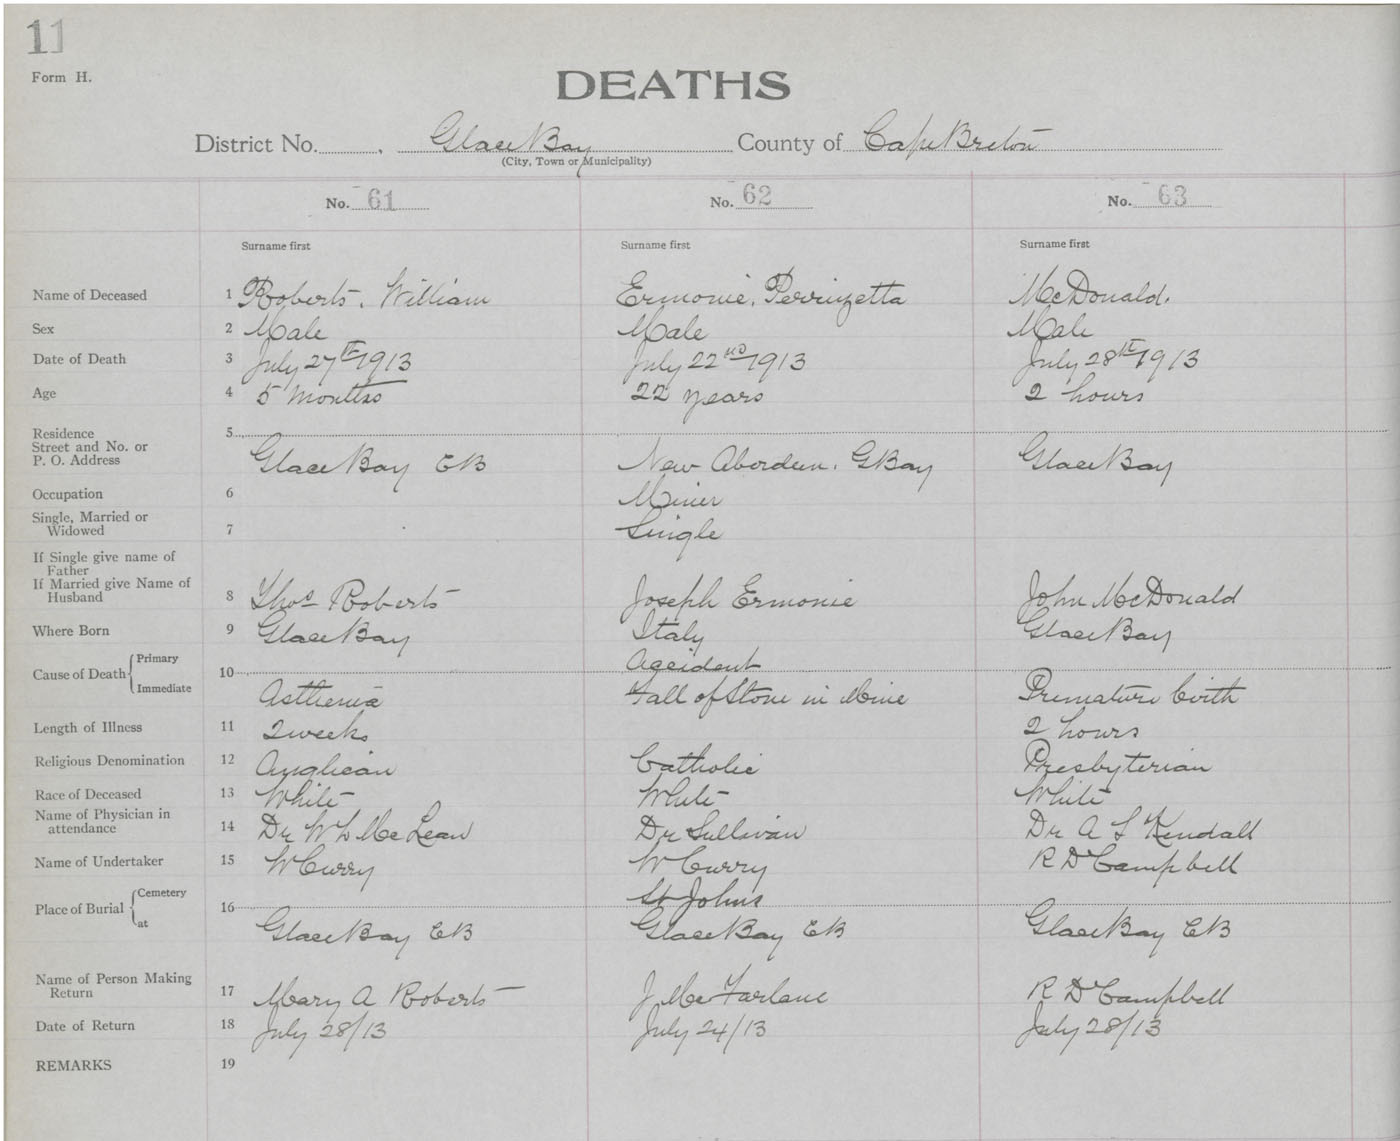 11
Form H.
DEATHS
District No. , Glace Bay County of Cape Breton
(City, Town or Municipality)
No. 61 No. 62 No. 63
Surname first Surname first Surname first
Name of Deceased 1 Roberts, William Ermonie, Perrinzetta McDonald.
Sex 2 Male Male Male
Date of Death 3 July 27th 1913 July 22nd 1913 July 28th 1913
Age 4 5 months 22 years 2 hours
Residence 5
Street and No. or
P. O. Address Glace Bay CB New Aberdeen. G Bay Glace Bay
Occupation 6 Miner
Single, Married or
Widowed 7 Single
If Single give name of
Father
If Married give Name of
Husband 8 Thos Roberts Joseph Ermonie John McDonald
Where Born 9 Glace Bay Italy Glace Bay
Cause of Death Primary 10 Accident
Immediate Asthenia Fall of Stone in Mine Premature birth
Length of Illness 11 2 weeks 2 hours
Religious Denomination 12 Anglican Catholic Presbyterian
Race of Deceased 13 White White White
Name of Physician in
attendance 14 Dr W L McLean Dr Sullivan Dr A S Kendall
Name of Undertaker 15 W Curry W Curry R D Campbell
Place of Burial Cemetery 16 St Johns
at Glace Bay CB Glace Bay CB Glace Bay CB
Name of Person Making
Return 17 Mary A Roberts J McFarlane R D Campbell
Date of Return 18 July 28/13 July 24/13 July 28/13
REMARKS 19